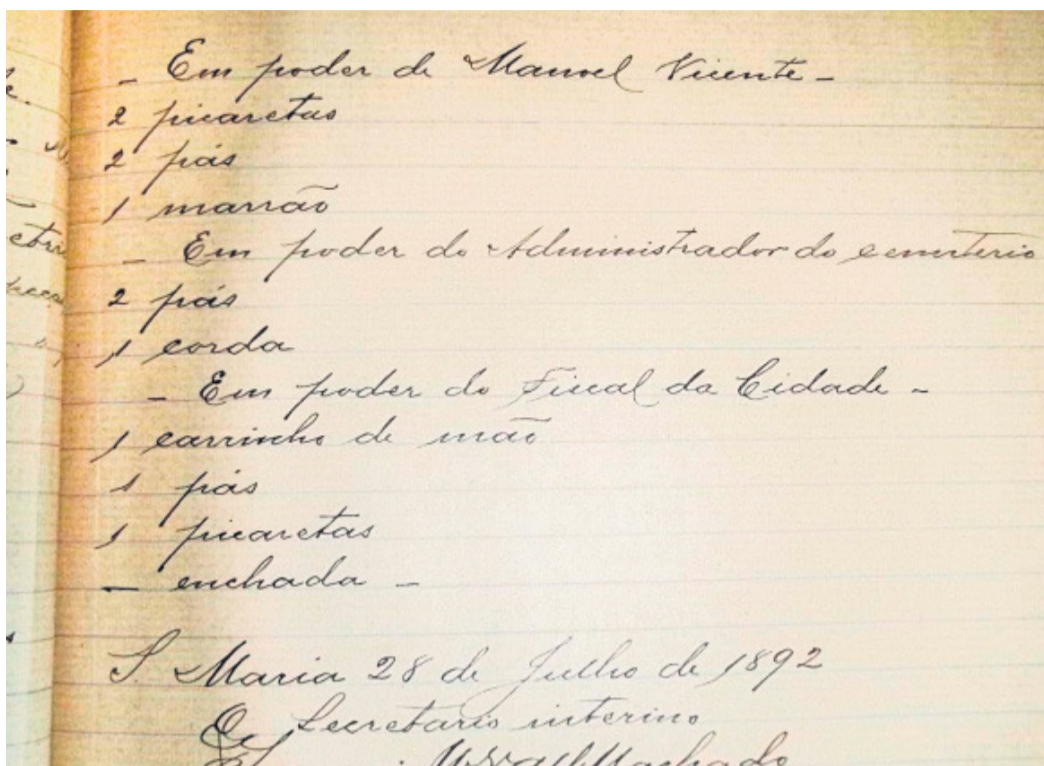 - Em poder de Manoel Vicente -
2 picaretas
2 pás
1 marrão
- Em poder do Administrador do cemiterio
2 pás
1 corda
- Em poder do Fiscal da Cidade -
1 carrinho de mão
1 pás
1 picaretas
- enchada -
S Maria 28 de Julho de 1892
O Secretario interino
Machado